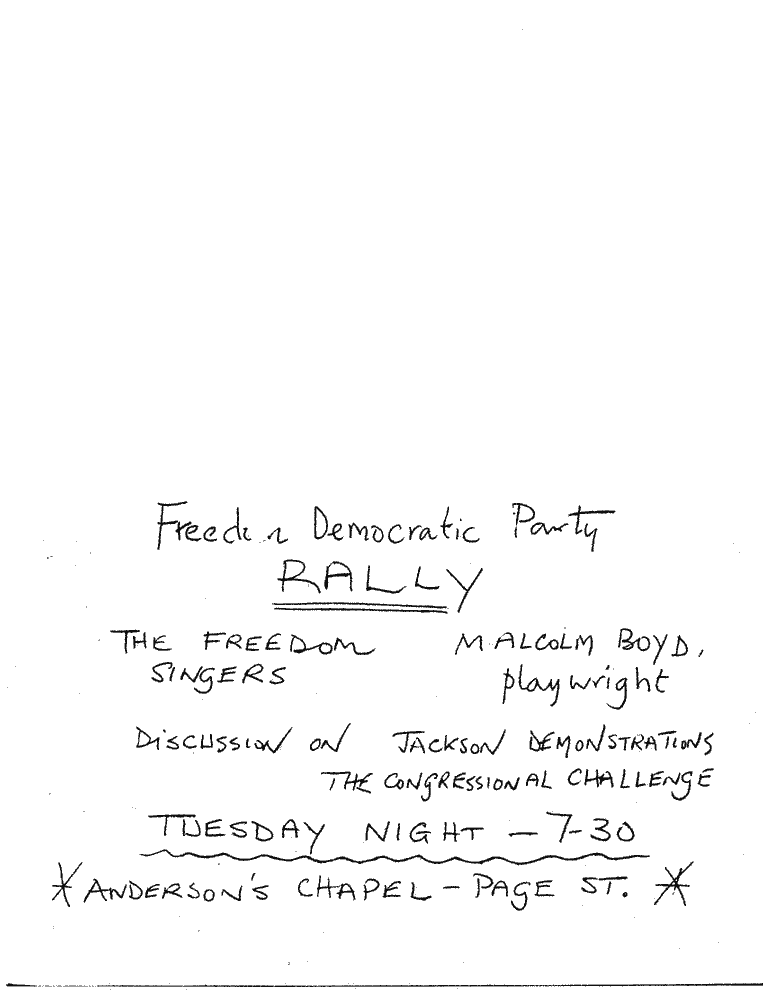 Freedom Democratic Party
RALLY
THE FREEDOM SINGERS
MALCOLM BOYD, playwright
DISCUSSION ON JACKSON DEMONSTRATIONS
THE CONGRESSIONAL CHALLENGE
TUESDAY NIGHT – 7-30
* ANDERSON'S CHAPEL – PAGE ST. *